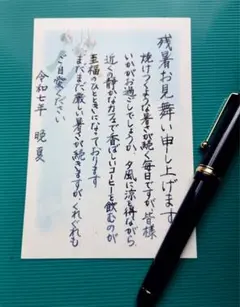 残暑お見舞い申し上げます
焼けつくような暑さが続く毎日ですが、皆様
いかがお過ごしでしょうか 夕風に涼を得ながら、
近くの静かなカフェで香ばしいコーヒーを飲むのが
至福のひとときになっております
まだまだ厳しい暑さが続きますが、くれぐれも
ご自愛ください
令和七年 晩夏